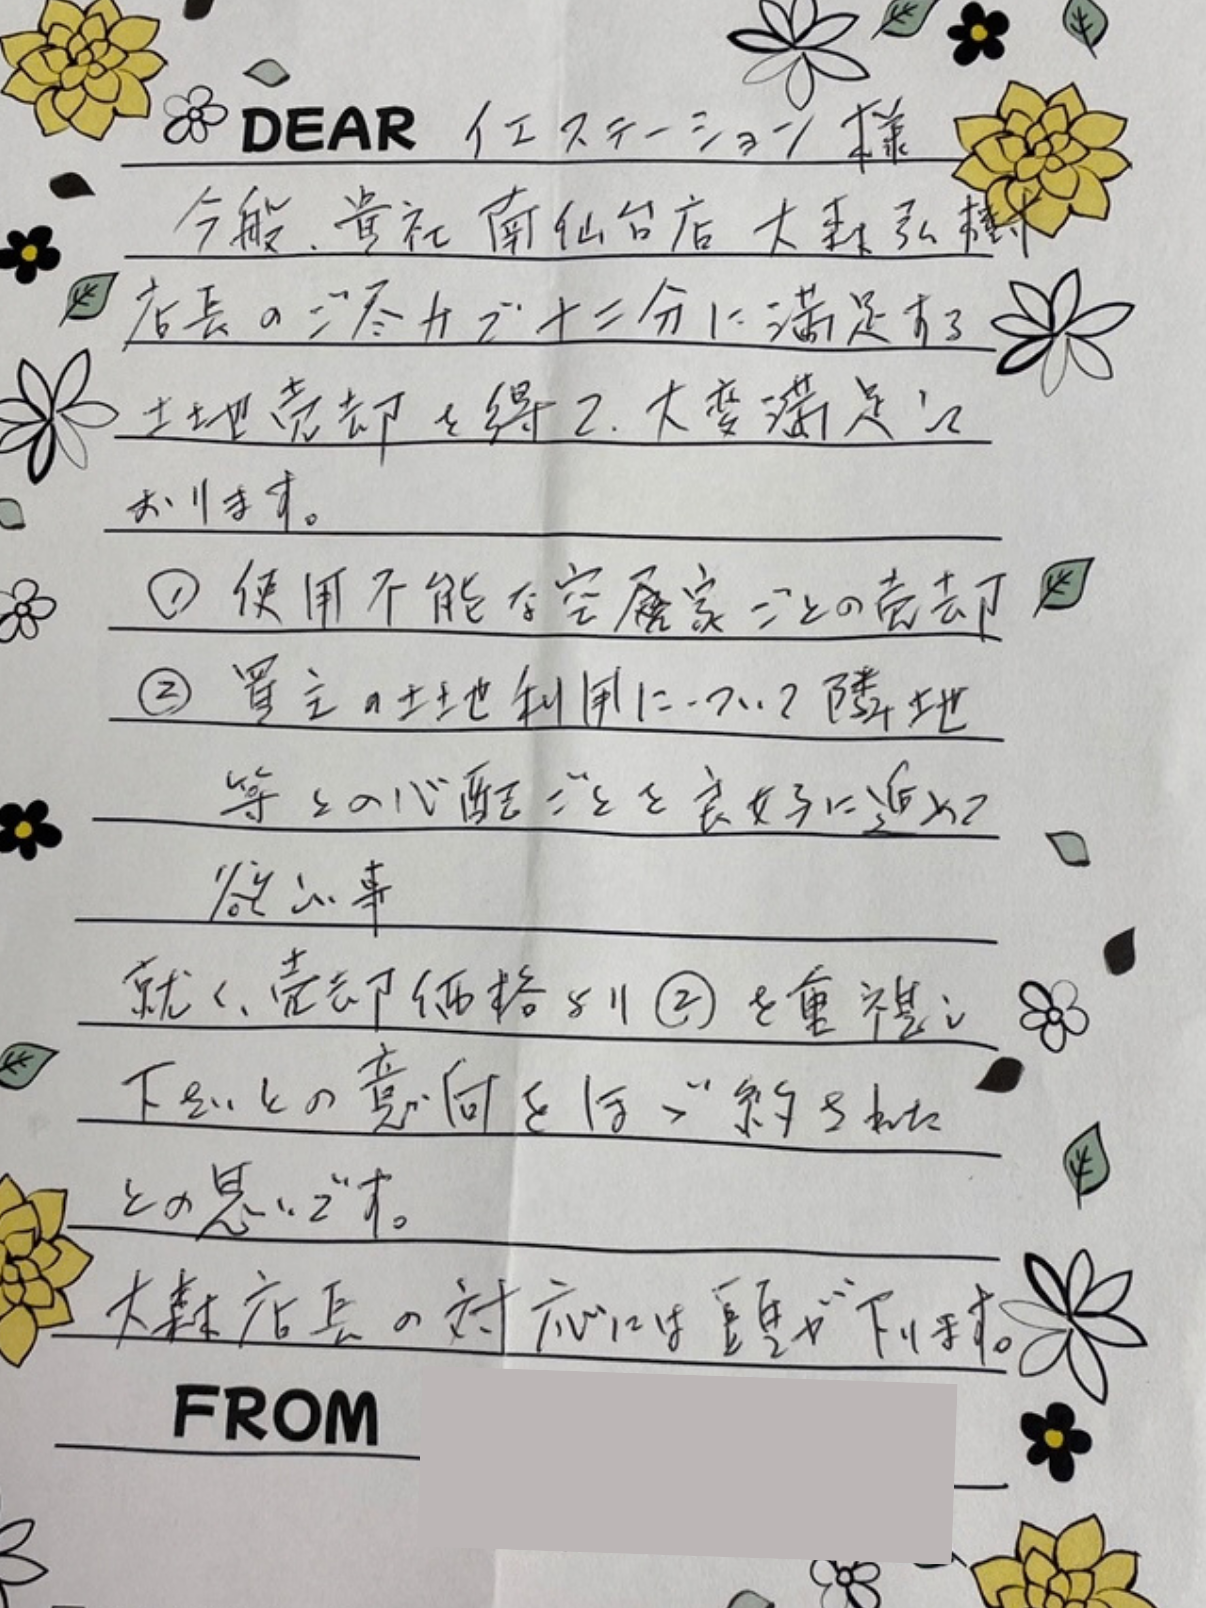 DEAR イエステーション 様
今般、貴社 南仙台店 大森弘樹
店長のご尽力で十二分に満足する
土地売却を得て、大変満足して
おります。
① 使用不能な空居家ごとの売却
② 買主の土地利用について隣地
等との心配ごとを良好に進めて
欲しい事
就く、売却価格より②を重視し
下さいとの意向をほゞ約された
との思いです。
大森店長の対応には頭が下ります。
FROM